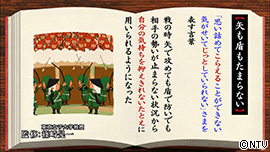 【矢も盾もたまらない】
「思い詰めてこらえることができない
気がせいてじっとしていられない」さまを
表す言葉
戦の時 矢で攻めても盾で防いでも
相手の勢いが止まらない状況から
自分の気持ちを抑えきれないたとえに
用いられるようになった
監修:篠崎晃一
©NTV